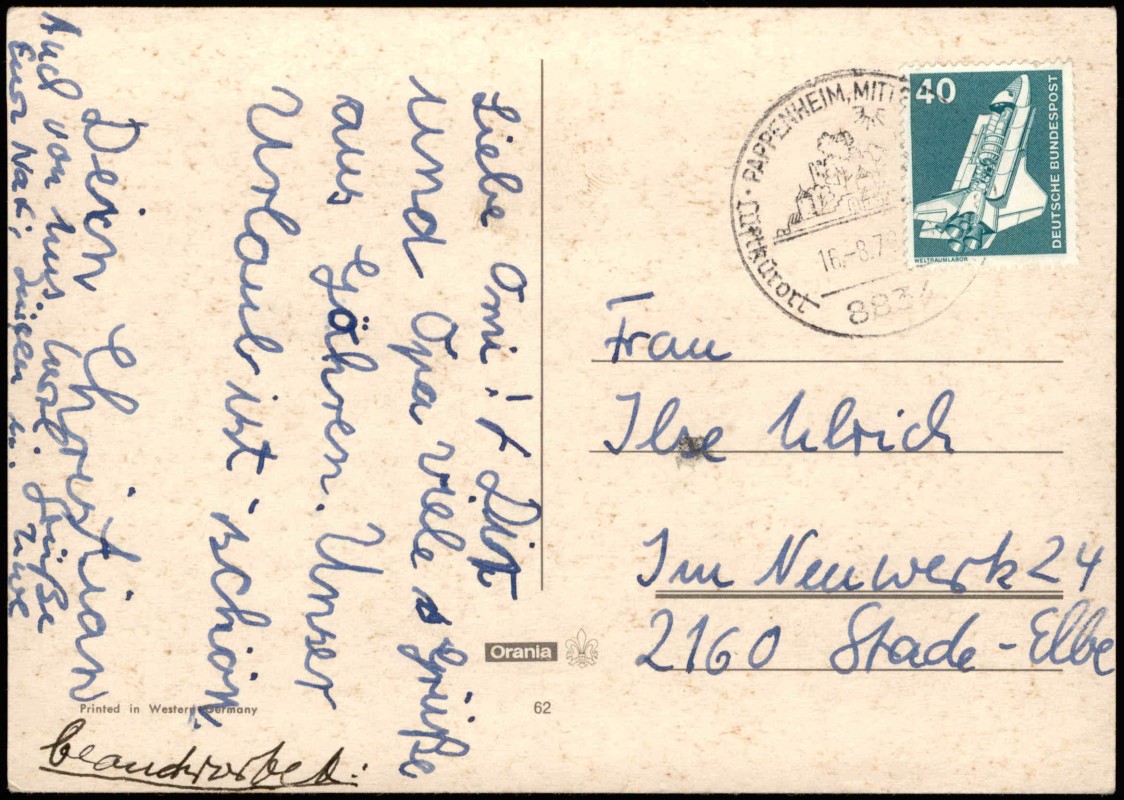 Liebe Omi! Dir
und Opa viele Grüße
aus Göhren. Unser
Urlaub ist schön.
Dein Christian
Auch von uns herzl. Grüße
Eure
40
DEUTSCHE BUNDESPOST
WELTRAUMLABOR
PAPPENHEIM, MITT
Luftkurort
16.-8.7
883
Frau
Ilse Ulrich
Im Neuwerk 24
2160 Stade-Elbe
Orania
Printed in Western Germany
62
beantwortet: